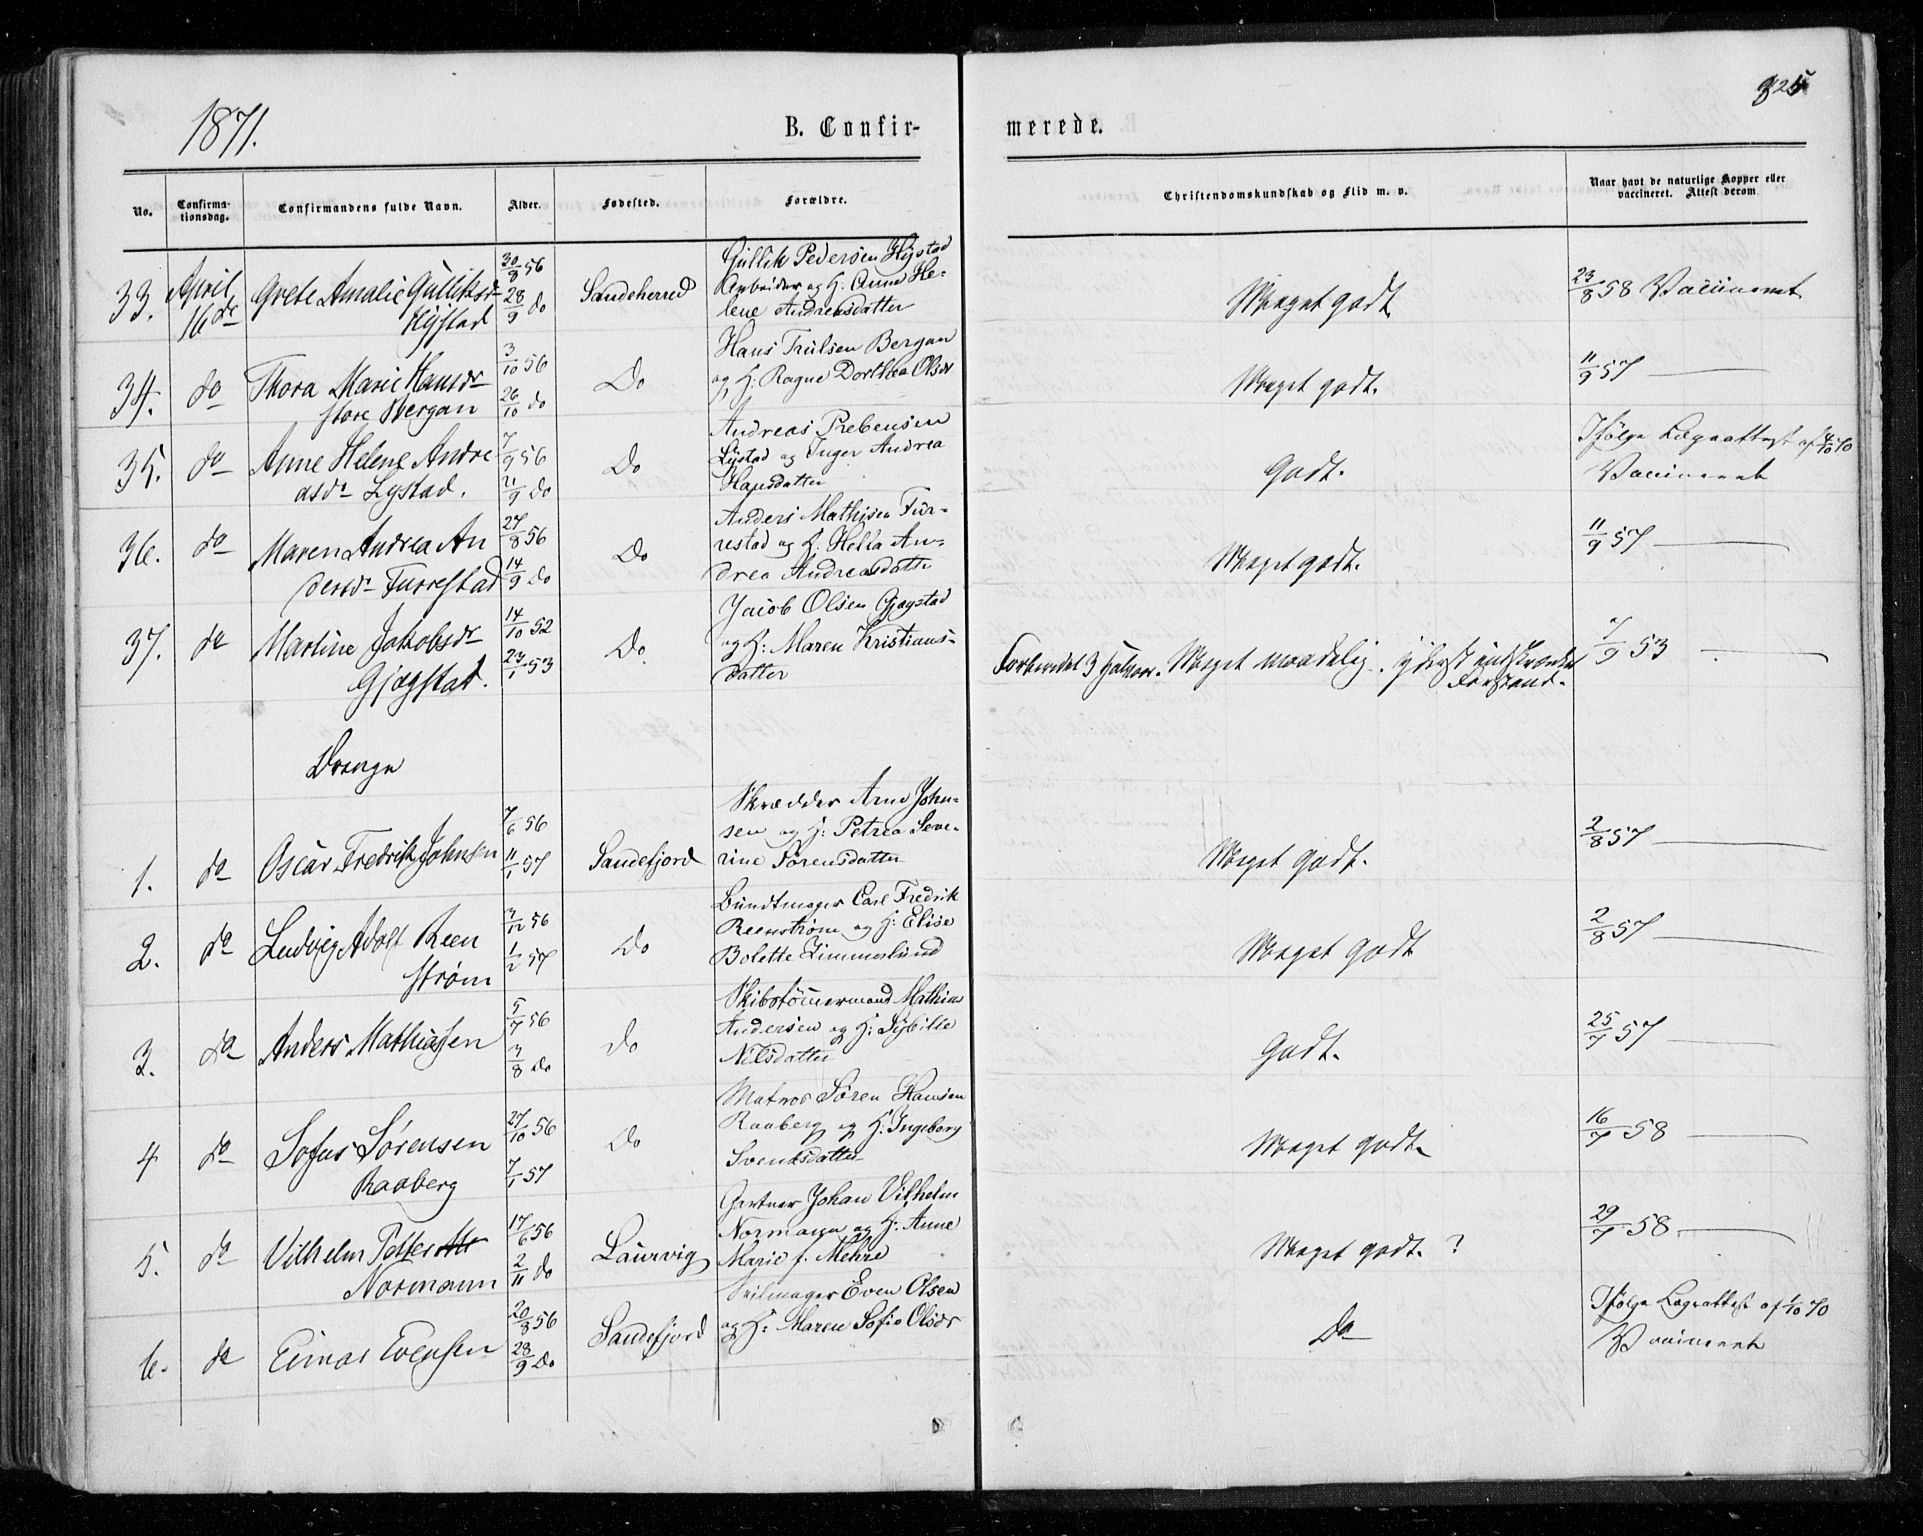 1871.
B. Confir-
merede.
825
No.
Confirma-
tionsdag.
Confirmandens fulde Navn.
Alder.
Fødested.
Forældre.
Christendomskundskab og Flid m. v.
Naar havt de naturlige Kopper eller
vaccineret. Attest derom.
33. April 16de Grete Amalie Gulliksd- 30/8 56 Sandeherred Gullik Pedersen Hystad Meget godt 23/8 58 Vaccineret
Hystad 28/9 do Arbeider og H. Anne He-
lene Andreasdatter
34. do Thora Marie Hansdr 3/10 56 Do Hans Trulsen Bergan Meget godt. 11/9 57 —
store Bergan 26/10 do og H: Ragne Dorthea Olsdr
35. do Anne Helene Andre 7/9 56 Do Andreas Prebensen Godt. Ifølge Lægeattest af 4/10 70
asdr Lystad. 21/9 do Lystad og Inger Andrea Vaccineret
Hansdatter
36. do Maren Andrea An 27/8 56 Do Anders Mathisen Fur- Meget godt. 11/9 57 —
dersdr Furrestad 14/9 do restad og H: Hella An-
drea Andreasdatter
37. do Martine Jakobsdr 14/10 52 Do. Jacob Olsen Gjøgstad Forberedet 3 Halvaar. Meget maadelig. yderst indskrænket 7/9 53 —
Gjøgstad. 23/1 53 og H: Maren Kristians- Forstand.
datter
Drenge
1. do Oscar Fredrik Johnsen 7/6 56 Sandefjord Skrædder Arne John- Meget godt. 2/8 57 —
11/1 57 sen og H: Petrea Seve-
rine Sørensdatter
2. do Ludvig Adolf Reen 3/12 56 Do Bundtmager Carl Fredrik Meget godt 2/8 57 —
strøm 1/2 57 Reenstrøm og H: Elise
Bolette Zimmerlund
3. do Anders Mathiassen 5/7 56 Do Skibstømmermand Mathias Godt. 25/7 57 —
3/8 do Andersen og H: Sybille
Nilsdatter
4 do Sofus Sørensen 27/10 56 Do Matros Søren Hansen Meget godt 16/7 58 —
Raaberg 7/1 57 Raaberg og H: Ingeborg
Svendsdatter
5. do Vilhelm Petter 17/6 56 Laurvig Gartner Johan Vilhelm Meget godt. ? 29/7 58 —
Normann 2/11 do Normann og H: Anne
Marie f. Mehre
6. do Einar Evensen 20/8 56 Sandefjord Seilmager Even Olsen Do Ifølge Lægeattest af 1/10 70
28/9 do og H: Maren Sofie Olsdr Vaccineret